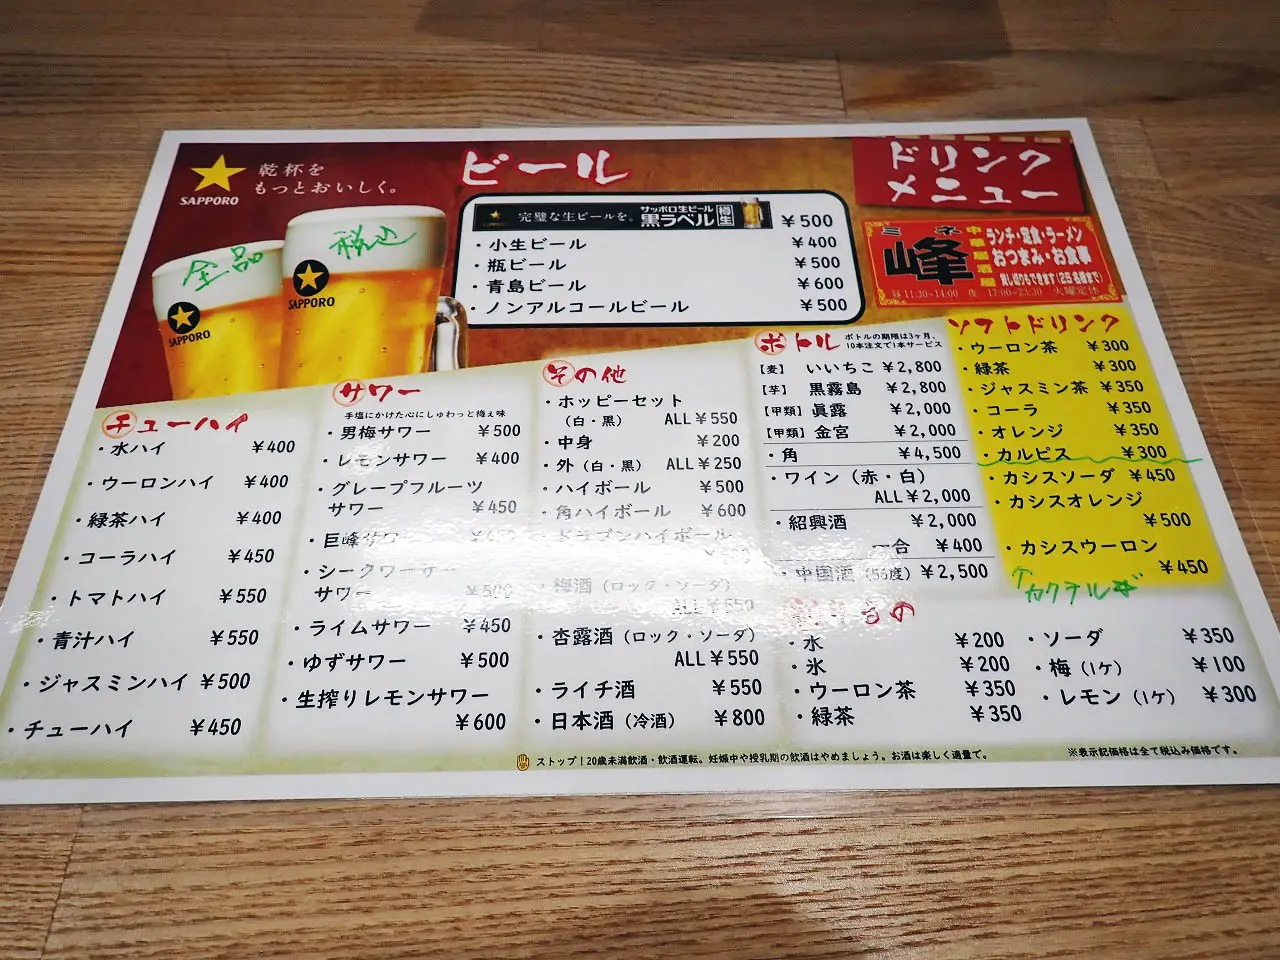 SAPPORO
乾杯を
もっとおいしく。
全品
税込
SAPPORO
SAPPORO
ビール
完璧な生ビールを。 サッポロ生ビール 黒ラベル 樽生 ¥500
・小生ビール ¥400
・瓶ビール ¥500
・青島ビール ¥600
・ノンアルコールビール ¥500
ドリンク
メニュー
ミネ
峰
中華居酒屋
ランチ・定食・ラーメン
おつまみ・お食事
貸し切りできます(25名様まで)
昼 11:30~14:00 夜 17:00~23:30 火曜定休
チューハイ
・水ハイ ¥400
・ウーロンハイ ¥400
・緑茶ハイ ¥400
・コーラハイ ¥450
・トマトハイ ¥550
・青汁ハイ ¥550
・ジャスミンハイ ¥500
・チューハイ ¥450
サワー
手塩にかけた心にしゅわっと梅ぇ味
・男梅サワー ¥500
・レモンサワー ¥400
・グレープフルーツ
サワー ¥450
・巨峰サワー
・シークワーサー
サワー ¥500
・ライムサワー ¥450
・ゆずサワー ¥500
・生搾りレモンサワー
¥600
その他
・ホッピーセット
(白・黒) ALL ¥550
・中身 ¥200
・外(白・黒) ALL ¥250
・ハイボール ¥500
・角ハイボール ¥600
・ドラゴンハイボール
・梅酒(ロック・ソーダ)
ALL ¥550
・杏露酒(ロック・ソーダ)
ALL ¥550
・ライチ酒 ¥550
・日本酒(冷酒) ¥800
ボトル
ボトルの期限は3ヶ月、
10本注文で1本サービス
【麦】 いいちこ ¥2,800
【芋】 黒霧島 ¥2,800
【甲類】 眞露 ¥2,000
【甲類】 金宮 ¥2,000
・角 ¥4,500
・ワイン(赤・白)
ALL ¥2,000
・紹興酒 ¥2,000
一合 ¥400
・中国酒(56度) ¥2,500
ソフトドリンク
・ウーロン茶 ¥300
・緑茶 ¥300
・ジャスミン茶 ¥350
・コーラ ¥350
・オレンジ ¥350
・カルピス ¥300
・カシスソーダ ¥450
・カシスオレンジ
¥500
・カシスウーロン
¥450
↑カクテル
割りもの
・水 ¥200
・氷 ¥200
・ウーロン茶 ¥350
・緑茶 ¥350
・ソーダ ¥350
・梅(1ケ) ¥100
・レモン(1ケ) ¥300
ストップ!20歳未満飲酒・飲酒運転。妊娠中や授乳期の飲酒はやめましょう。お酒は楽しく適量で。
※表示記価格は全て税込み価格です。